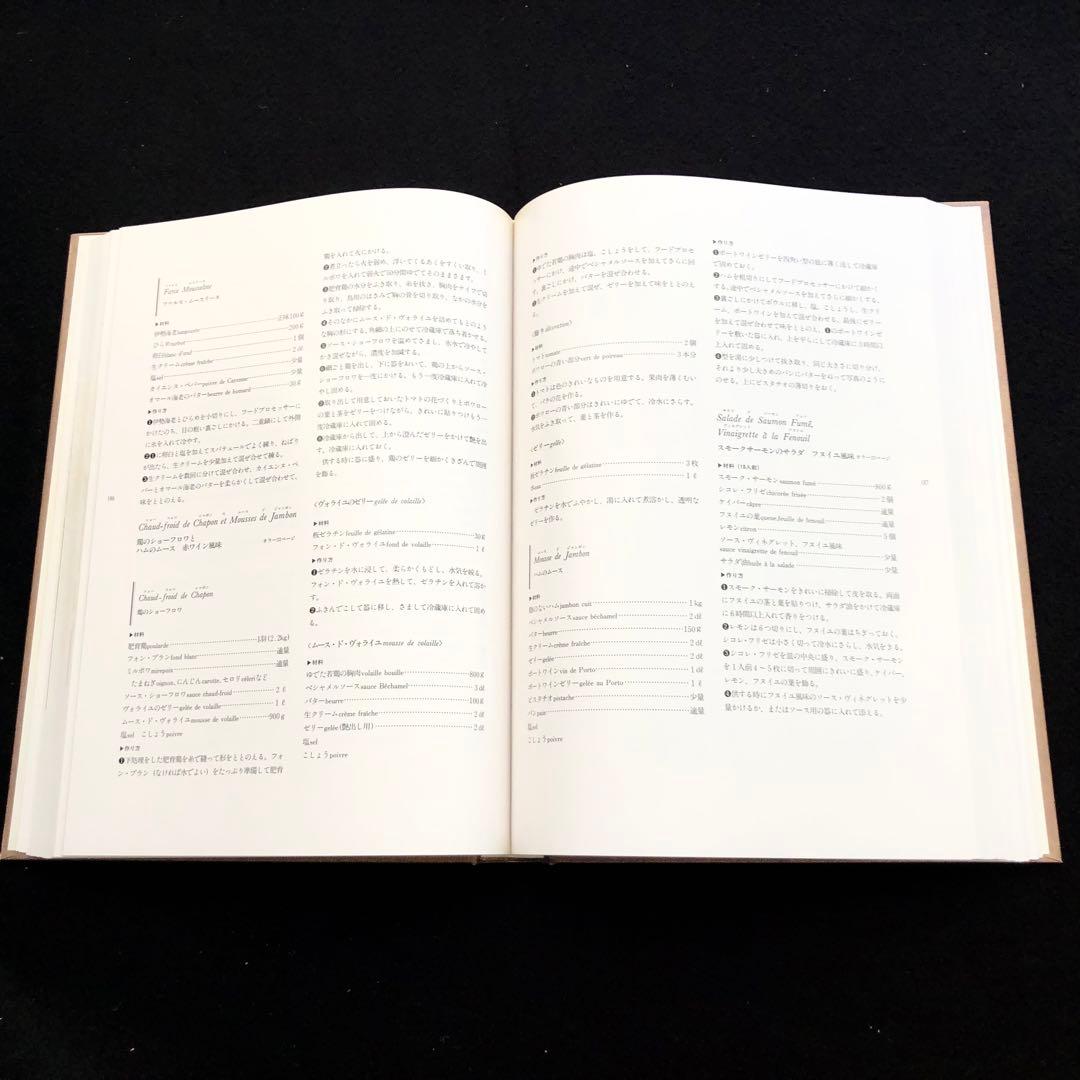 Farce Mousseline
ファルス・ムースリーヌ
▶材料
伊勢海老langouste 正味100g
ひらめturbot 200g
卵白blanc d'œuf 1個
生クリームcrème fraîche 2dℓ
塩sel 少量
カイエンヌ・ペパーpoivre de Cayenne 少量
オマール海老のバターbeurre de homard 30g
▶作り方
❶伊勢海老とひらめを小切りにし、フードプロセッサーに
かけたのち、目の粗い裏ごしにかける。二重鍋にして外側
に氷を入れて冷やす。
❷❶に卵白と塩を加えてスパテュールでよく練り、ねばり
が出たら、生クリームを少量加えて混ぜ合せて練る。
❸生クリームを数回に分けて混ぜ合わせ、カイエンヌ・ペ
パーとオマール海老のバターを柔らかくして混ぜ合わせて、
味をととのえる。
Chaud-froid de Chapon et Mousses de Jambon
鶏のショーフロワと
ハムのムース 赤ワイン風味 カラー
Chaud-froid de Chapon
鶏のショーフロワ
▶材料
肥育鶏poularde 1羽(2.2kg)
フォン・ブランfond blanc 適量
ミルポワmirepoix 適量
たまねぎoignon、にんじんcarotte、セロリcéleriなど
ソース・ショーフロワsauce chaud-froid 2ℓ
ヴォライユのゼリーgelée de volaille 1ℓ
ムース・ド・ヴォライユmousse de volaille 900g
塩sel こしょうpoivre
▶作り方
❶下処理をした肥育鶏を糸で縫って形をととのえる。フォ
ン・ブラン（なければ水でよい）をたっぷり準備して肥育
鶏を入れて火にかける。
❷煮立ったら火を弱め、浮いてくるあくをすくい取り、ミ
ルポワを入れて弱火で50分間ゆでてそのままさます。
❸肥育鶏の水分をふき取り、糸を抜き、胸肉をナイフで切
り取り、鳥用のはさみで胸の骨を切り取り、なかの水分を
ふき取って掃除する。
❹そのなかにムース・ド・ヴォライユを詰めてもとのよう
な胸の形にする。角網の上にのせて冷蔵庫で落ち着かせる。
❺ソース・ショーフロワを温めてさまし、氷水で冷やして
かき混ぜながら、濃度を加減する。
❻網ごと鶏を出し、下に器をおいて、鶏の上からソース・
ショーフロワを一度にかける。もう一度冷蔵庫に入れて冷
やし固める。
❼取り出して用意しておいたトマトの花づくりとポワロー
の葉と茎をゼリーをつけながら、きれいに貼りつけもう一
度冷蔵庫に入れて固める。
❽冷蔵庫から出して、上から澄んだゼリーをかけて艶を出
す。冷蔵庫に入れておく。
供する時に器に盛り、鶏のゼリーを細かくきざんで周囲
を飾る。
〈ヴォライユのゼリーgelée de volaille〉
▶材料
板ゼラチンfeuille de gélatine 30g
フォン・ド・ヴォライユfond de volaille 1ℓ
▶作り方
❶ゼラチンを水に浸して、柔らかくもどし、水気を絞る。
フォン・ド・ヴォライユを熱して、ゼラチンを入れて溶か
す。
❷ふきんでこして器に移し、さまして冷蔵庫に入れて固め
る。
〈ムース・ド・ヴォライユmousse de volaille〉
▶材料
ゆでた若鶏の胸肉volaille bouille 800g
ベシャメルソースsauce Béchamel 3dℓ
バターbeurre 100g
生クリームcrème fraîche 2dℓ
ゼリーgelée(艶出し用) 2dℓ
塩sel
こしょうpoivre
▶作り方
❶ゆでた若鶏の胸肉は塩、こしょうをして、フードプロセ
ッサーにかけ、途中でベシャメルソースを加えてさらに回
す。裏ごしにかけ、バターを混ぜ合わせる。
❷生クリームを加えて混ぜ、ゼリーを加えて味をととのえ
る。
〈飾りdécoration〉
▶材料
トマトtomate 2個
ポワローの青い部分vert de poireau 3本分
▶作り方
❶トマトは色のきれいなものを用意する。果肉を薄くむい
て、バラの花を作る。
❷ポワローの青い部分はきれいにゆでて、冷水にさらす。
水気をふき取って、葉と茎を作る。
〈ゼリーgelée〉
▶材料
板ゼラチンfeuille de gélatine 3枚
水eau 1ℓ
▶作り方
ゼラチンを水でふやかし、湯に入れて煮溶かし、透明な
ゼリーを作る。
Mousse de Jambon
ハムのムース
▶材料
脂のないハムjambon cuit 1kg
ベシャメルソースsauce béchamel 2dℓ
バターbeurre 150g
生クリームcrème fraîche 2dℓ
ゼリーgelée 2dℓ
ポートワインvin de Porto 1dℓ
ポートワインゼリーgelée au Porto 1ℓ
ピスタチオpistache 少量
パンpain 適量
塩sel
こしょうpoivre
▶作り方
❶ポートワインゼリーを四角い型の底に薄く流して冷蔵庫
で固めておく。
❷ハムを粗切りにしてフードプロセッサーにかけて細かく
する。途中でベシャメルソースを加えてさらに細かくする。
❸裏ごしにかけてボウルに移し、塩、こしょうし、生クリ
ーム、ポートワインを加えて混ぜ合わせる。最後にゼリー
を加えて混ぜ合わせて味をととのえ、❶のポートワインゼ
リーを敷いた器に入れ、上を平らにして冷蔵庫に3時間以
上入れて固める。
❹型を湯に少しつけて抜き取り、同じ大きさに切り分け、
それより少し大きめのパンにバターをぬって写真のように
のせる。上にピスタチオの薄切りをおく。
Salade de Saumon Fumé,
Vinaigrette à la Fenouil
スモークサーモンのサラダ フヌイユ風味 カラー
▶材料（15人前）
スモーク・サーモンsaumon fumé 800g
シコレ・フリゼchicorée frisée 2個
ケイパーcâpre 適量
フヌイユの葉queue,feuille de fenouil 適量
レモンcitron 5個
ソース・ヴィネグレット、フヌイユ風味
sauce vinaigrette de fenouil 少量
サラダ油huile à la salade 少量
▶作り方
❶スモーク・サーモンをきれいに掃除して皮を取る。両面
にフヌイユの茎と葉を貼りつけ、サラダ油をかけて冷蔵庫
に6時間以上入れて香りをつける。
❷レモンは6つ切りにし、フヌイユの葉はちぎっておく。
シコレ・フリゼは小さく切って冷水にさらし、水気をきる。
❸シコレ・フリゼを皿の中央に盛り、スモーク・サーモン
を1人前4～5枚に切って周囲にきれいに盛り、ケイパー、
レモン、フヌイユの葉を飾る。
❹供する時にフヌイユ風味のソース・ヴィネグレットを少
量かけるか、またはソース用の器に入れて添える。